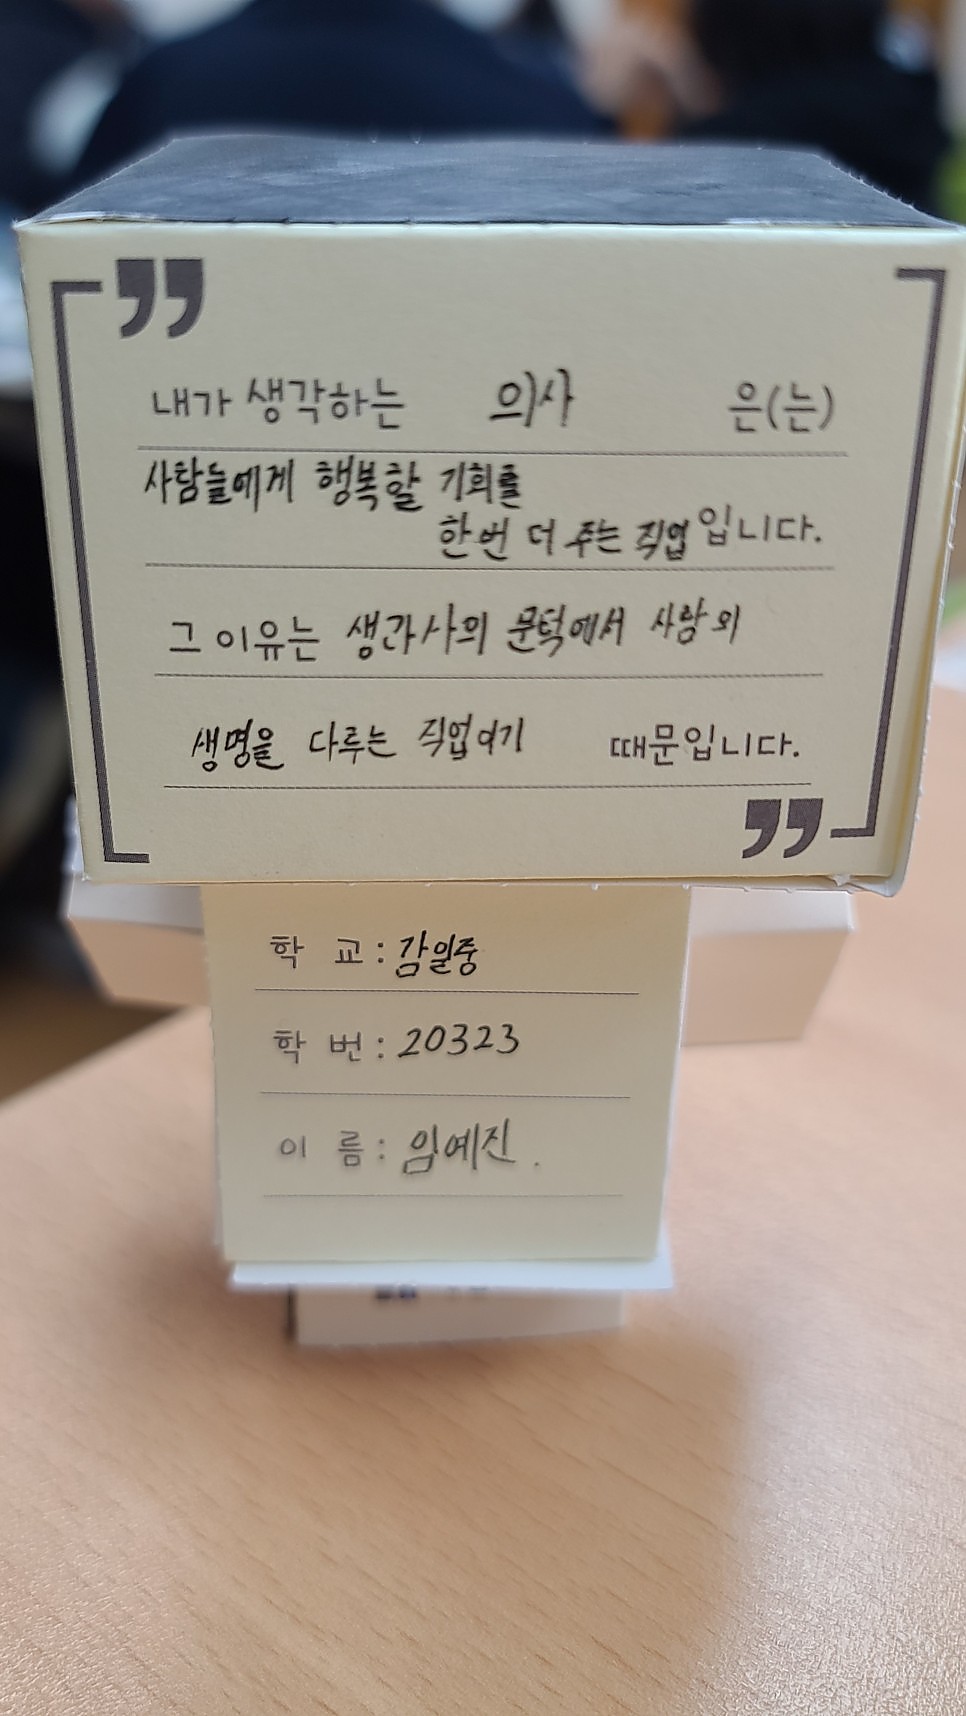 내가 생각하는 의사 은(는)
사람들에게 행복할 기회를
한번 더 주는 직업입니다.
그 이유는 생과사의 문턱에서 사람의
생명을 다루는 직업이기 때문입니다.
학 교: 감일중
학 번: 20323
이 름: 임예진.